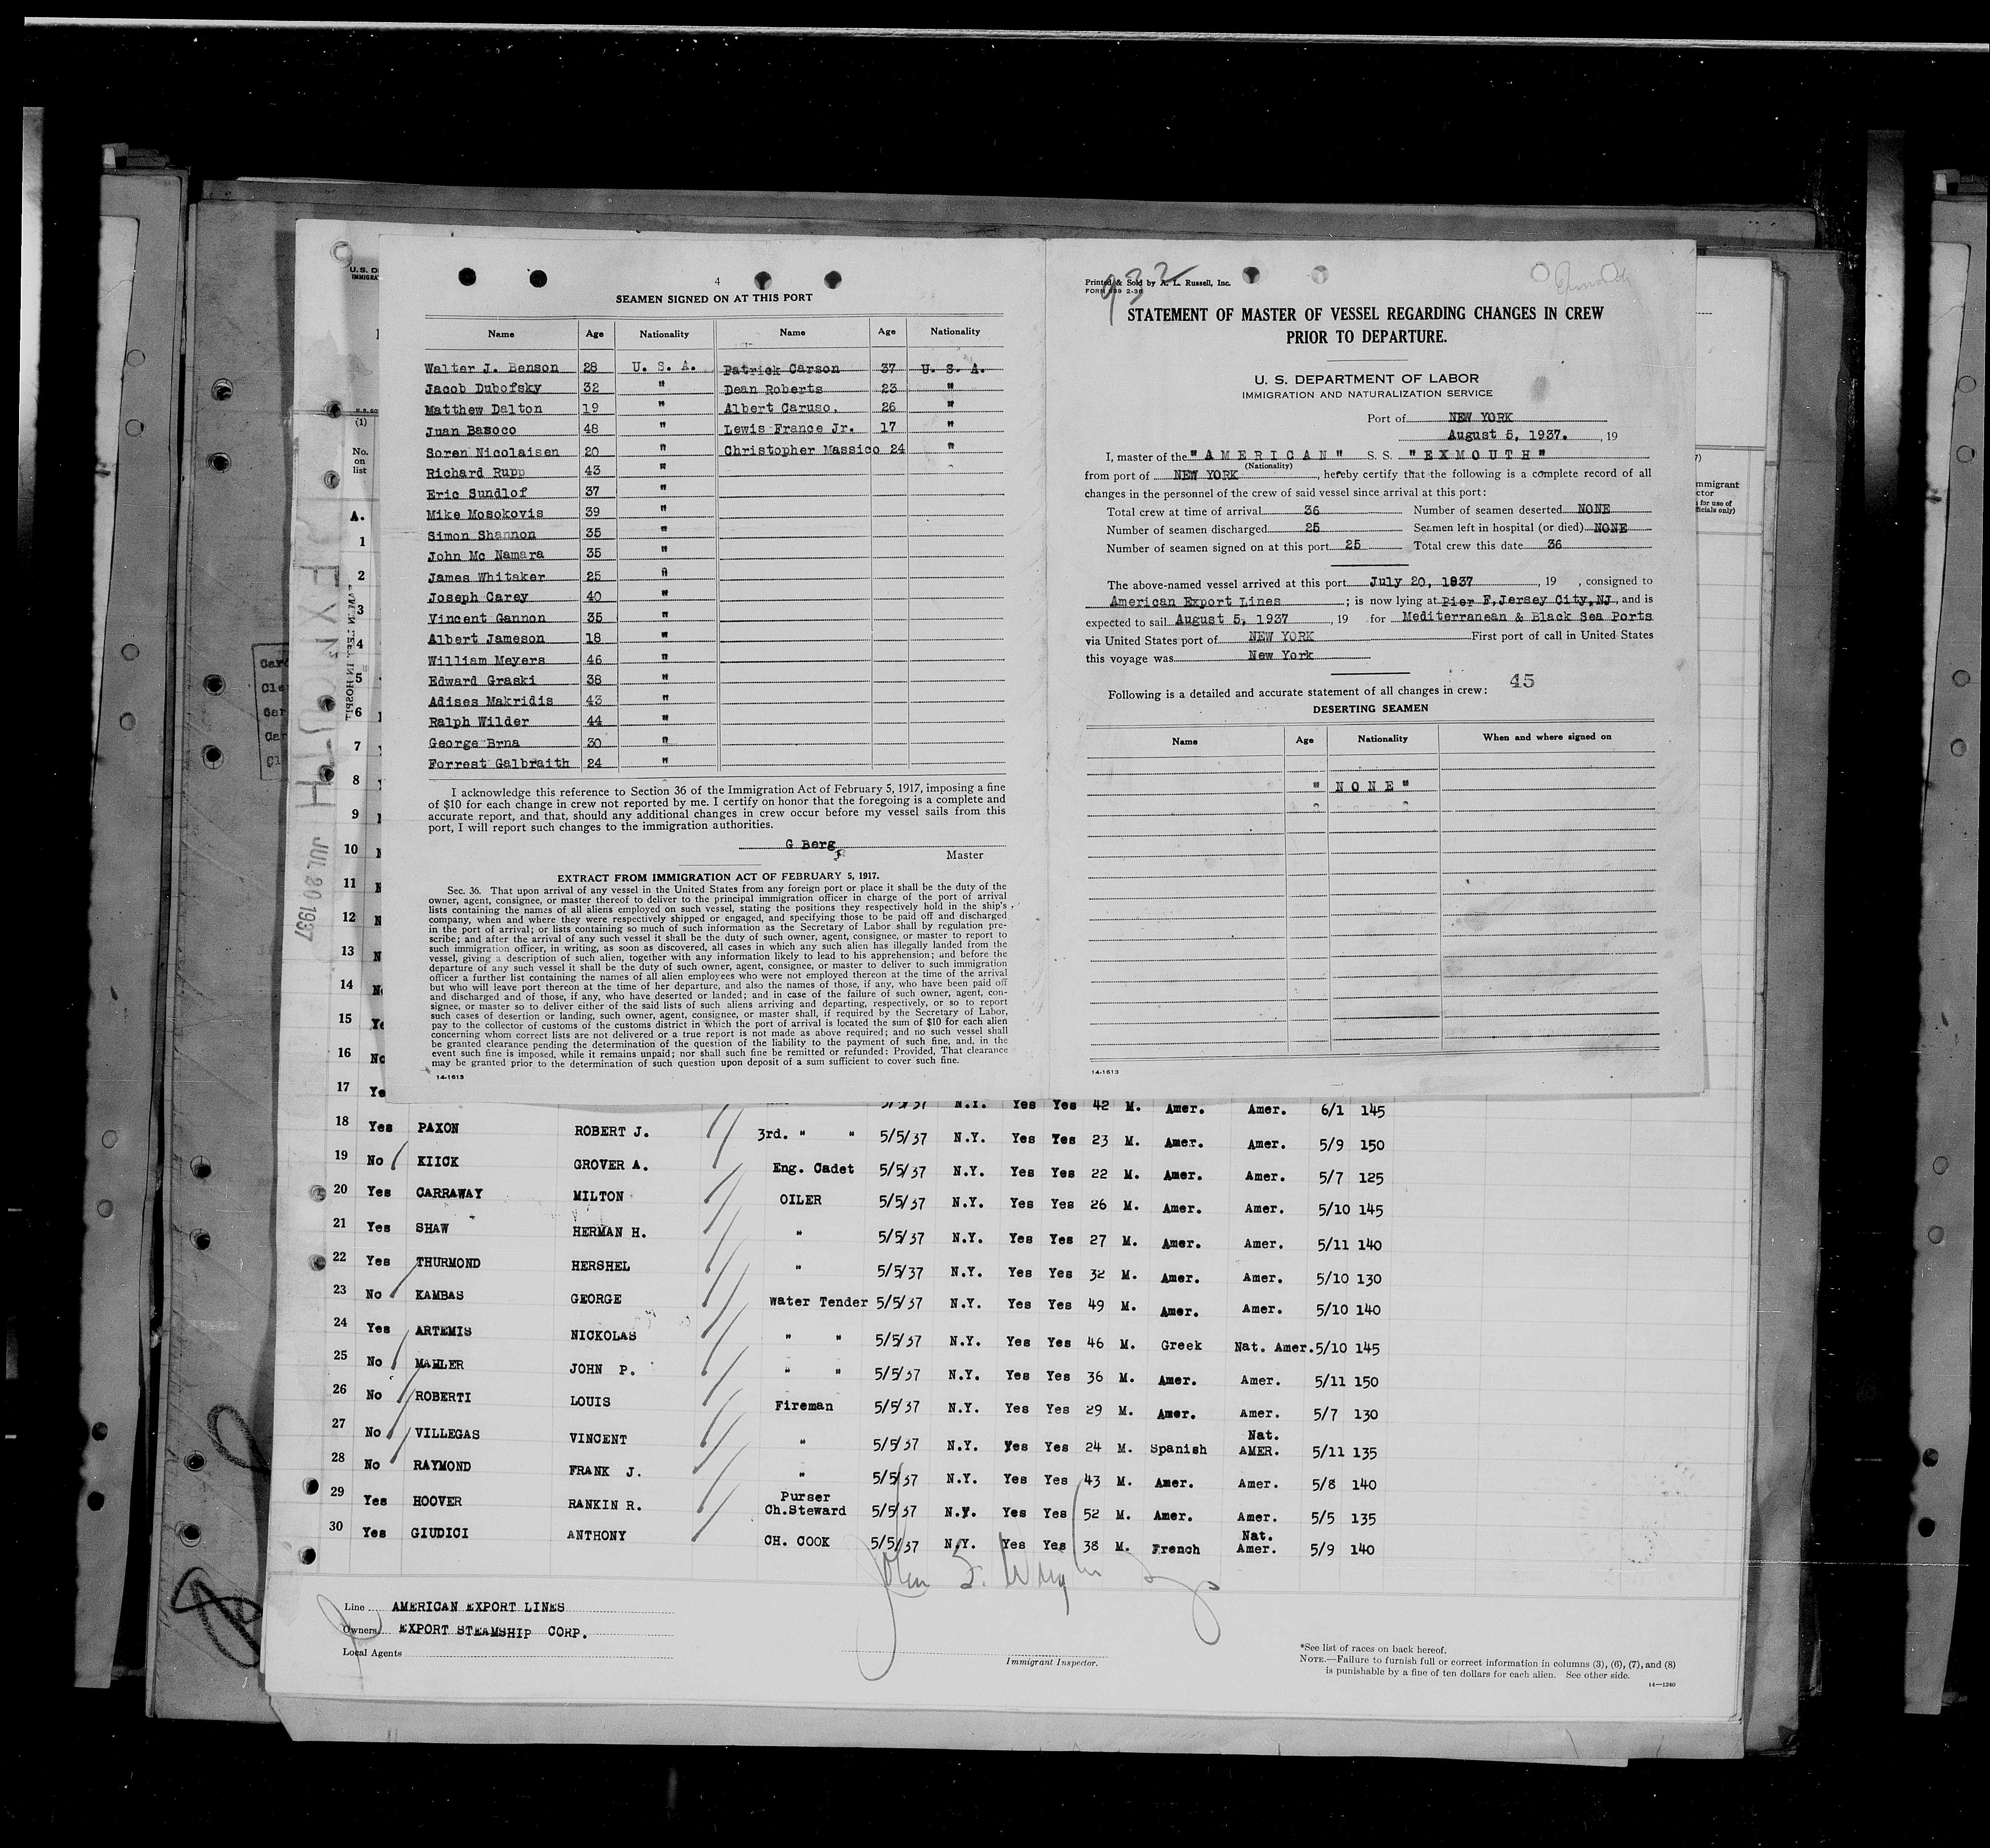 4
SEAMEN SIGNED ON AT THIS PORT
Name Age Nationality Name Age Nationality
Walter J. Benson 28 U. S. A. Patrick Carson 37 U. S. A.
Jacob Dubofsky 32 " Dean Roberts 23 "
Matthew Dalton 19 " Albert Caruso. 26 "
Juan Basoco 48 " Lewis France Jr. 17 "
Soren Nicolaisen 20 " Christopher Massico 24 "
Richard Rupp 43 "
Eric Sundlof 37 "
Mike Mosokovis 39 "
Simon Shannon 35 "
John Mc Namara 35 "
James Whitaker 25 "
Joseph Carey 40 "
Vincent Gannon 35 "
Albert Jameson 18 "
William Meyers 46 "
Edward Graski 38 "
Adises Makridis 43 "
Ralph Wilder 44 "
George Brna 30 "
Forrest Galbraith 24 "
I acknowledge this reference to Section 36 of the Immigration Act of February 5, 1917, imposing a fine
of $10 for each change in crew not reported by me. I certify on honor that the foregoing is a complete and
accurate report, and that, should any additional changes in crew occur before my vessel sails from this
port, I will report such changes to the immigration authorities.
G Berg
Master
EXTRACT FROM IMMIGRATION ACT OF FEBRUARY 5, 1917.
Sec. 36. That upon arrival of any vessel in the United States from any foreign port or place it shall be the duty of the
owner, agent, consignee, or master thereof to deliver to the principal immigration officer in charge of the port of arrival
lists containing the names of all aliens employed on such vessel, stating the positions they respectively hold in the ship's
company, when and where they were respectively shipped or engaged, and specifying those to be paid off and discharged
in the port of arrival; or lists containing so much of such information as the Secretary of Labor shall by regulation pre-
scribe; and after the arrival of any such vessel it shall be the duty of such owner, agent, consignee, or master to report to
such immigration officer, in writing, as soon as discovered, all cases in which any such alien has illegally landed from the
vessel, giving a description of such alien, together with any information likely to lead to his apprehension; and before the
departure of any such vessel it shall be the duty of such owner, agent, consignee, or master to deliver to such immigration
officer a further list containing the names of all alien employees who were not employed thereon at the time of the arrival
but who will leave port thereon at the time of her departure, and also the names of those, if any, who have been paid off
and discharged and of those, if any, who have deserted or landed; and in case of the failure of such owner, agent, con-
signee, or master so to deliver either of the said lists of such aliens arriving and departing, respectively, or so to report
such cases of desertion or landing, such owner, agent, consignee, or master shall, if required by the Secretary of Labor,
pay to the collector of customs of the customs district in which the port of arrival is located the sum of $10 for each alien
concerning whom correct lists are not delivered or a true report is not made as above required; and no such vessel shall
be granted clearance pending the determination of the question of the liability to the payment of such fine, and, in the
event such fine is imposed, while it remains unpaid; nor shall such fine be remitted or refunded: Provided, That clearance
may be granted prior to the determination of such question upon deposit of a sum sufficient to cover such fine.
14-1613
932
Printed & Sold by A. L. Russell, Inc.
FORM 689 2-36
STATEMENT OF MASTER OF VESSEL REGARDING CHANGES IN CREW
PRIOR TO DEPARTURE.
U. S. DEPARTMENT OF LABOR
IMMIGRATION AND NATURALIZATION SERVICE
Port of NEW YORK
August 5, 1937. , 19
I, master of the "A M E R I C A N" S. S. "E X M O U T H"
(Nationality)
from port of NEW YORK , hereby certify that the following is a complete record of all
changes in the personnel of the crew of said vessel since arrival at this port:
Total crew at time of arrival 36 Number of seamen deserted NONE
Number of seamen discharged 25 Seamen left in hospital (or died) NONE
Number of seamen signed on at this port 25 Total crew this date 36
The above-named vessel arrived at this port July 20, 1937 , 19 , consigned to
American Export Lines ; is now lying at Pier F, Jersey City, NJ, and is
expected to sail August 5, 1937 , 19 for Mediterranean & Black Sea Ports
via United States port of NEW YORK First port of call in United States
this voyage was New York
Following is a detailed and accurate statement of all changes in crew: 45
DESERTING SEAMEN
Name Age Nationality When and where signed on
" N O N E "
14-1613
U.S. D
IMMIGRA
(1)
No.
on
list
A.
1
2
3
4
5
6
7
8
9
10
11
12
13
14
15
16
17
EXMOUTH JUL 20 1937
mmigrant
ctor
for use of
ficials only)
Yes Yes 42 M. Amer. Amer. 6/1 145
18 Yes PAXON ROBERT J. 3rd. " " 5/5/37 N.Y. Yes Yes 23 M. Amer. Amer. 5/9 150
19 No KIICK GROVER A. Eng. Cadet 5/5/37 N.Y. Yes Yes 22 M. Amer. Amer. 5/7 125
20 Yes CARRAWAY MILTON OILER 5/5/37 N.Y. Yes Yes 26 M. Amer. Amer. 5/10 145
21 Yes SHAW HERMAN H. " 5/5/37 N.Y. Yes Yes 27 M. Amer. Amer. 5/11 140
22 Yes THURMOND HERSHEL " 5/5/37 N.Y. Yes Yes 32 M. Amer. Amer. 5/10 130
23 No KAMBAS GEORGE Water Tender 5/5/37 N.Y. Yes Yes 49 M. Amer. Amer. 5/10 140
24 Yes ARTEMIS NICKOLAS " " 5/5/37 N.Y. Yes Yes 46 M. Greek Nat. Amer. 5/10 145
25 No MAHLER JOHN P. " " 5/5/37 N.Y. Yes Yes 36 M. Amer. Amer. 5/11 150
26 No ROBERTI LOUIS Fireman 5/5/37 N.Y. Yes Yes 29 M. Amer. Amer. 5/7 130
27 No VILLEGAS VINCENT " 5/5/37 N.Y. Yes Yes 24 M. Spanish Nat. AMER. 5/11 135
28 No RAYMOND FRANK J. " 5/5/37 N.Y. Yes Yes 43 M. Amer. Amer. 5/8 140
29 Yes HOOVER RANKIN R. Purser Ch.Steward 5/5/37 N.Y. Yes Yes 52 M. Amer. Amer. 5/5 135
30 Yes GIUDICI ANTHONY CH. COOK 5/5/37 N.Y. Yes Yes 38 M. French Nat. Amer. 5/9 140
Line AMERICAN EXPORT LINES
Owners EXPORT STEAMSHIP CORP.
Local Agents
Immigrant Inspector.
*See list of races on back hereof.
NOTE.—Failure to furnish full or correct information in columns (3), (6), (7), and (8)
is punishable by a fine of ten dollars for each alien. See other side.
14—1240